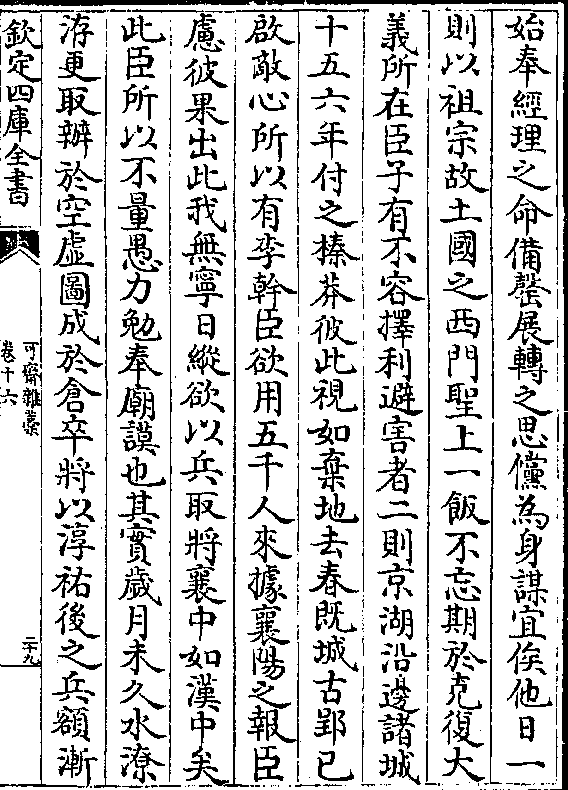 始奉經理之命備罄展轉之思儻為身謀宜俟他日一
則以祖宗故土國之西門聖上一飯不忘期於克復大
義所在臣子有不容擇利避害者二則京湖沿邊諸城
十五六年付之榛莽彼此視如棄地去春既城古郢已
啟敵心所以有李幹臣欲用五千人來據襄陽之報臣
慮彼果出此我無寧日縱欲以兵取將襄中如漢中矣
此臣所以不量愚力勉奉廟謨也其實歲月未久水潦
洊更取辦於空虛圖成於倉卒將以淳祐後之兵額漸
欽定四庫全書
可齋雜藁
卷十六
二十九